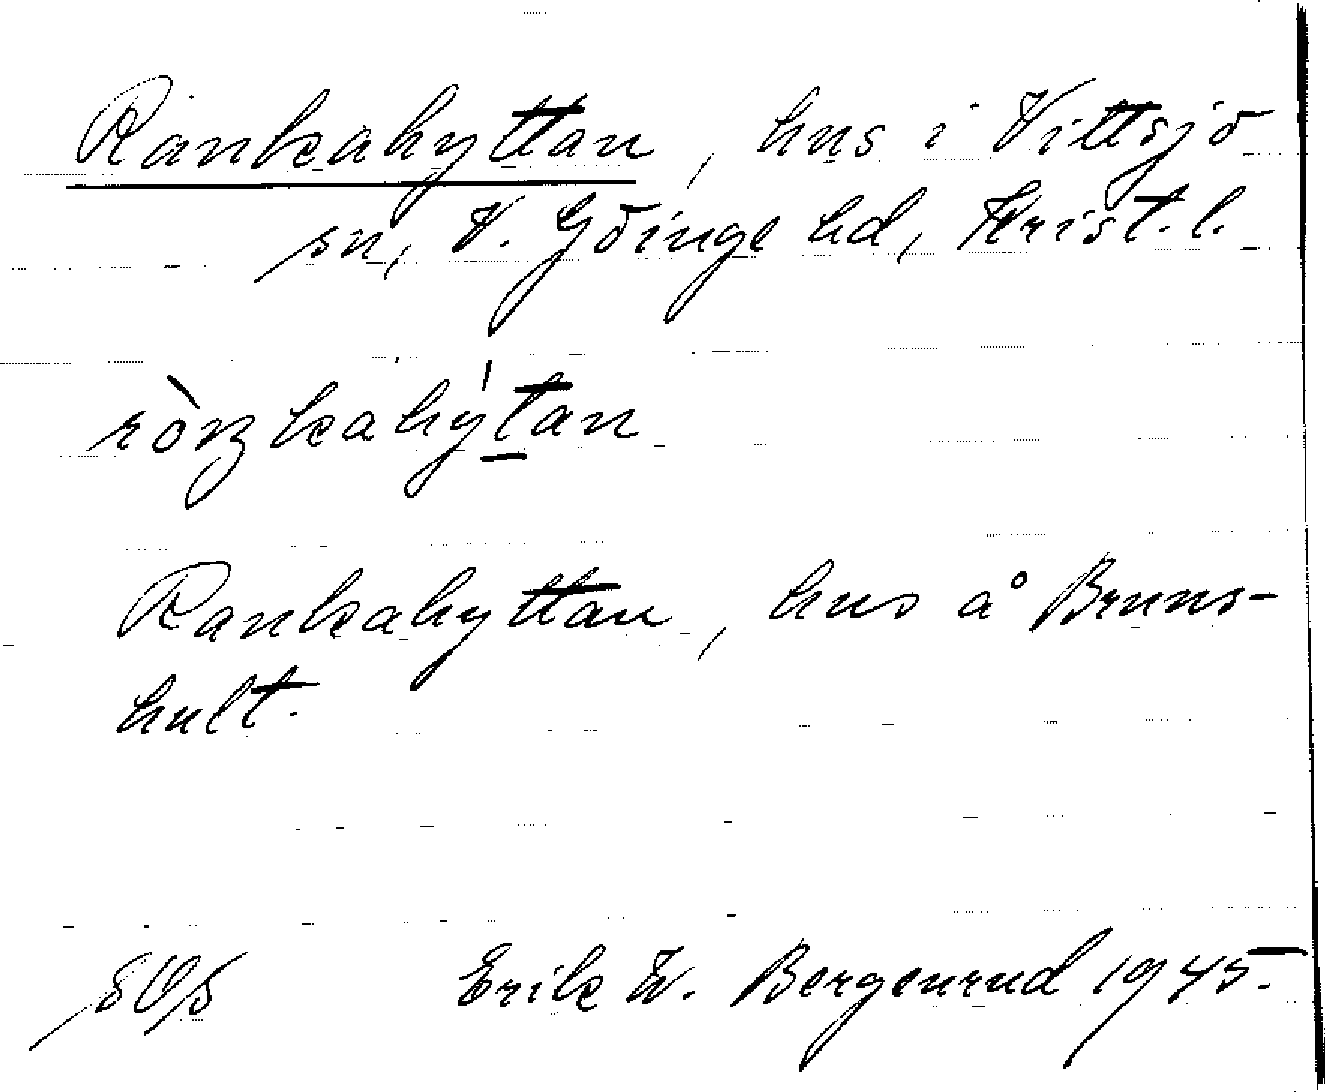 Rankahyttan, hus i Vittsjö
sn, V. Göinge hd, Krist. l.
hahýtan
Rankahyttan, hus å Bruns-
hult.
Erik W. Bergenrud 1945.